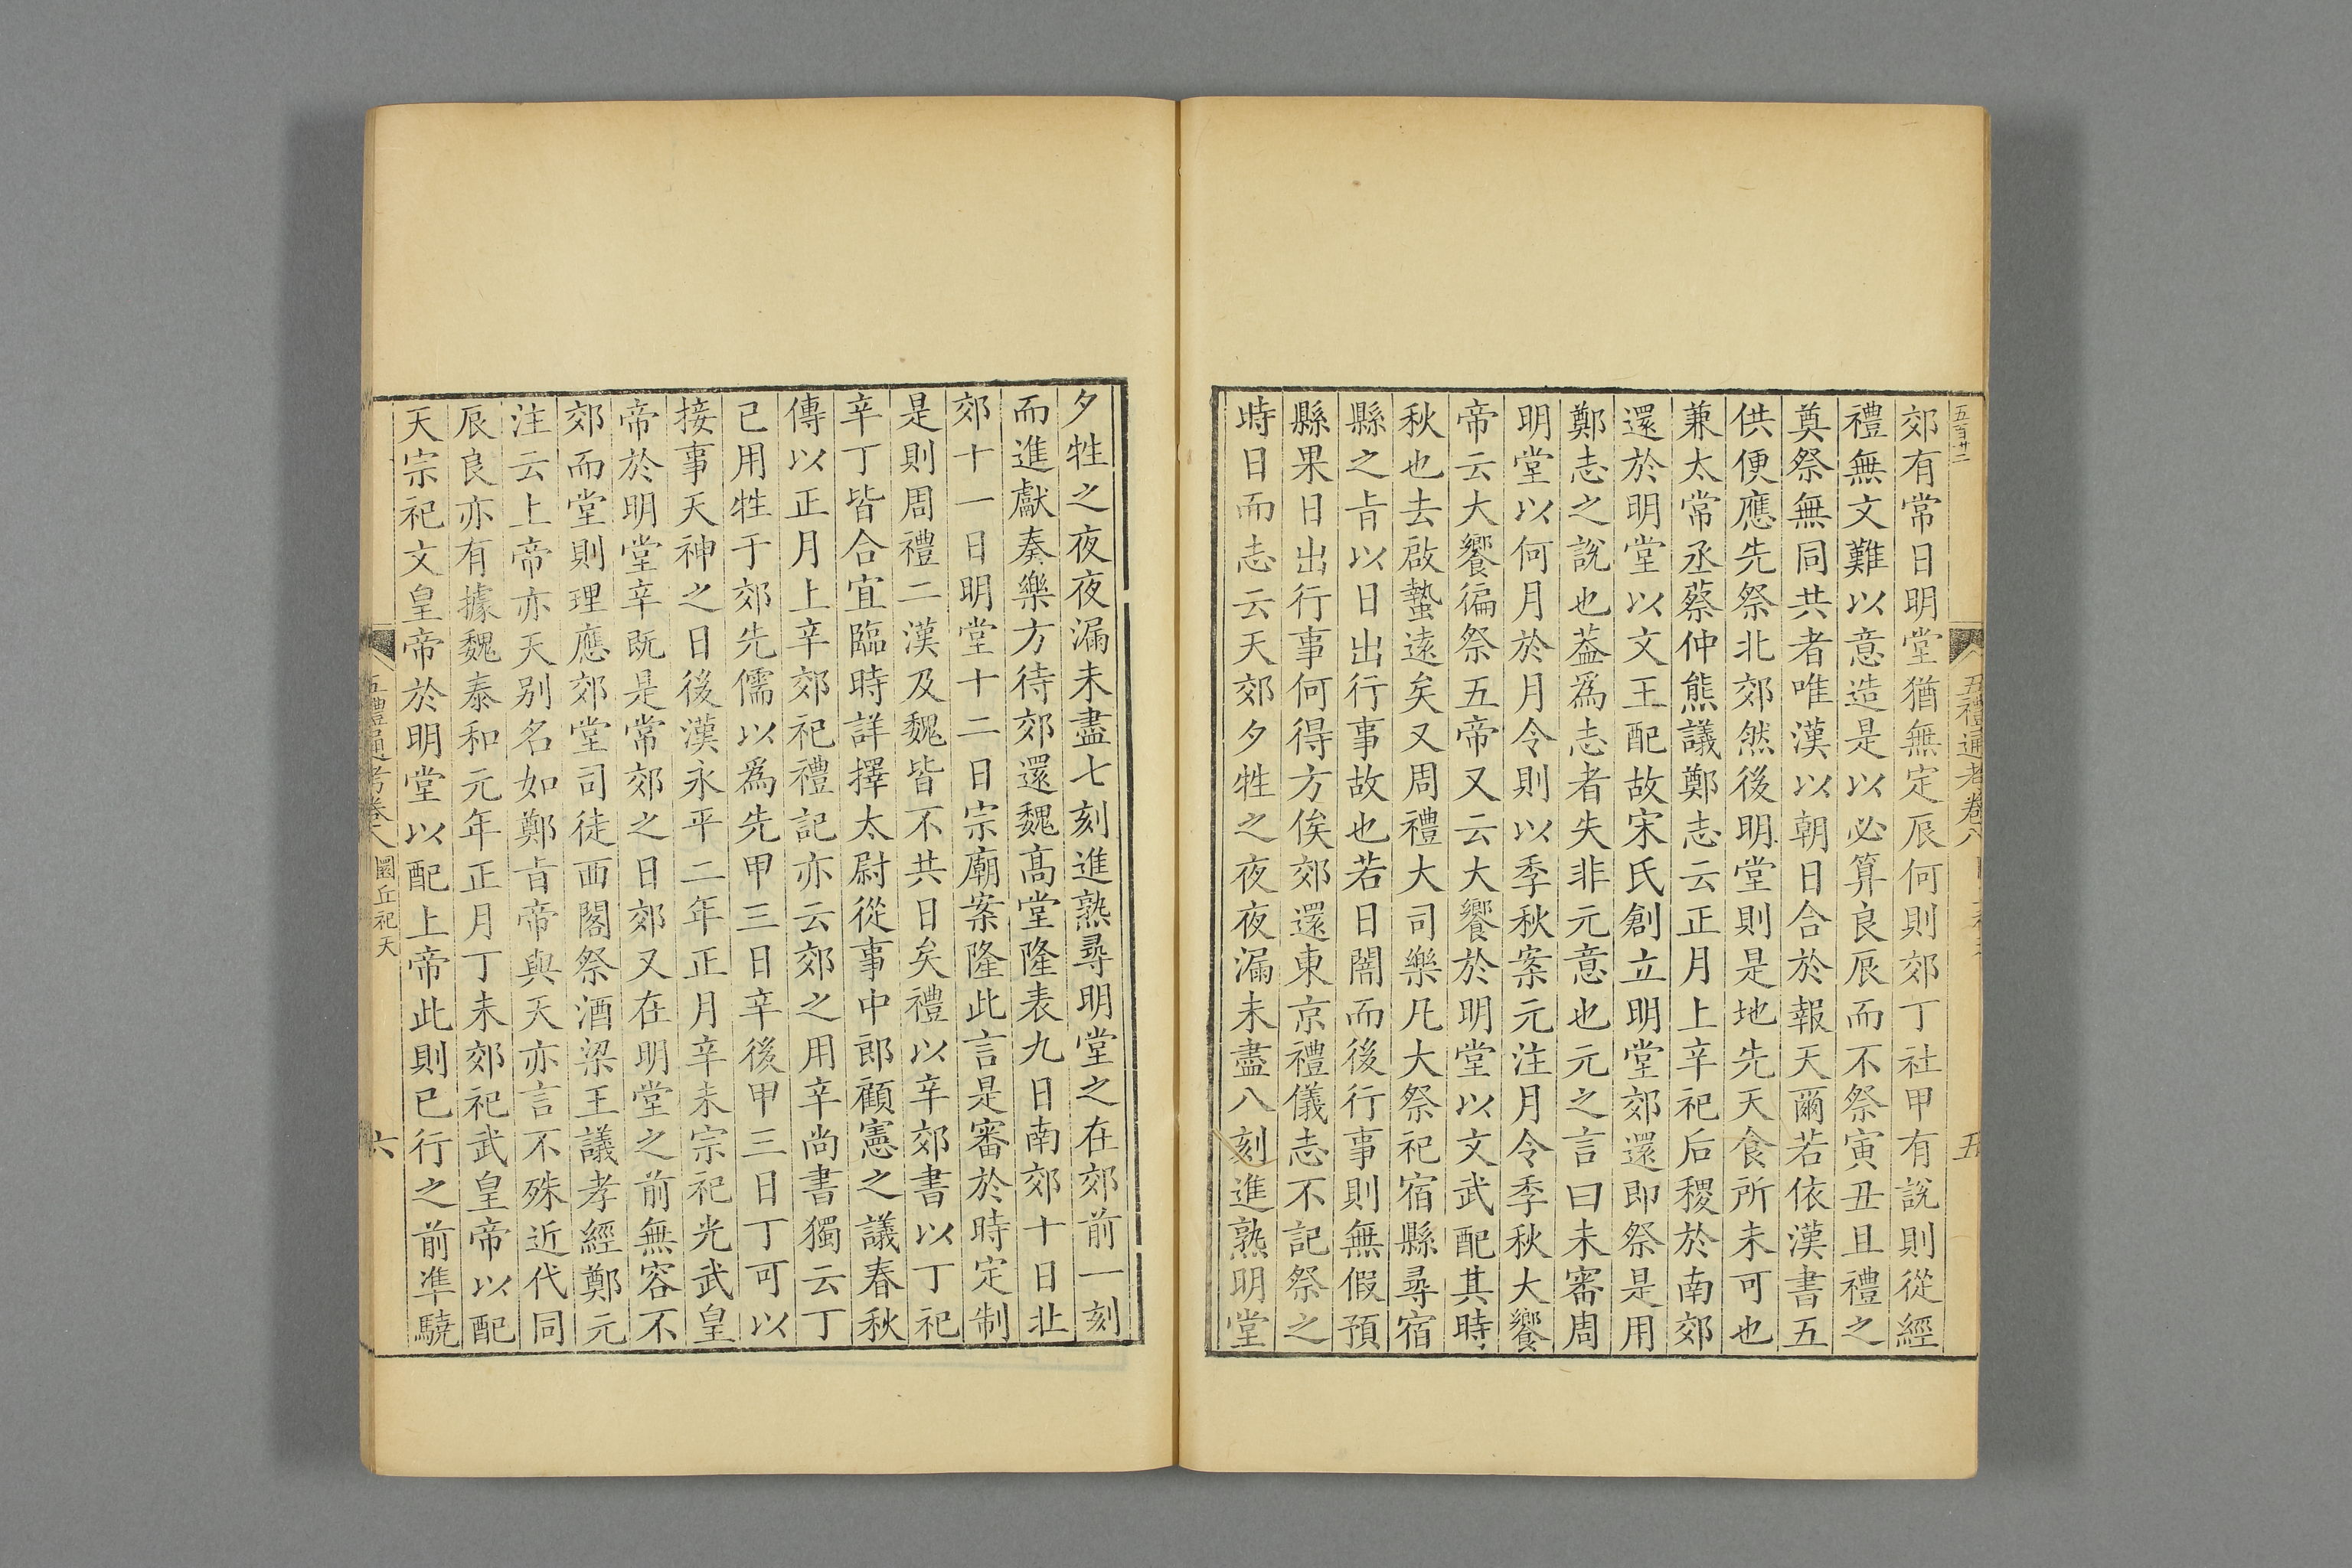 五百廿二
五禮通考卷八
五
郊有常日明堂猶無定辰何則郊丁社甲有說則從經
禮無文難以意造是以必算良辰而不祭寅丑且禮之
奠祭無同共者唯漢以朝日合於報天爾若依漢書五
供便應先祭北郊然後明堂則是地先天食所未可也
兼太常丞蔡仲熊議鄭志云正月上辛祀后稷於南郊
還於明堂以文王配故宋氏創立明堂郊還即祭是用
鄭志之說也葢爲志者失非元意也元之言曰未審周
明堂以何月於月令則以季秋案元注月令季秋大饗
帝云大饗徧祭五帝又云大饗於明堂以文武配其時
秋也去啟蟄遠矣又周禮大司樂凡大祭祀宿縣尋宿
縣之㫖以日出行事故也若日闇而後行事則無假預
縣果日出行事何得方俟郊還東京禮儀志不記祭之
時日而志云天郊夕牲之夜夜漏未盡八刻進熟明堂
夕牲之夜夜漏未盡七刻進熟尋明堂之在郊前一刻
而進獻奏樂方待郊還魏高堂隆表九日南郊十日北
郊十一日明堂十二日宗廟案隆此言是審於時定制
是則周禮二漢及魏皆不共日矣禮以辛郊書以丁祀
辛丁皆合宜臨時詳擇太尉從事中郎顧憲之議春秋
傳以正月上辛郊祀禮記亦云郊之用辛尚書獨云丁
已用牲于郊先儒以爲先甲三日辛後甲三日丁可以
接事天神之日後漢永平二年正月辛未宗祀光武皇
帝於明堂辛既是常郊之日郊又在明堂之前無容不
郊而堂則理應郊堂司徒西閣祭酒梁王議孝經鄭元
注云上帝亦天别名如鄭㫖帝與天亦言不殊近代同
辰良亦有據魏泰和元年正月丁未郊祀武皇帝以配
天宗祀文皇帝於明堂以配上帝此則已行之前準驍
五禮通考卷八 圜丘祀天
六